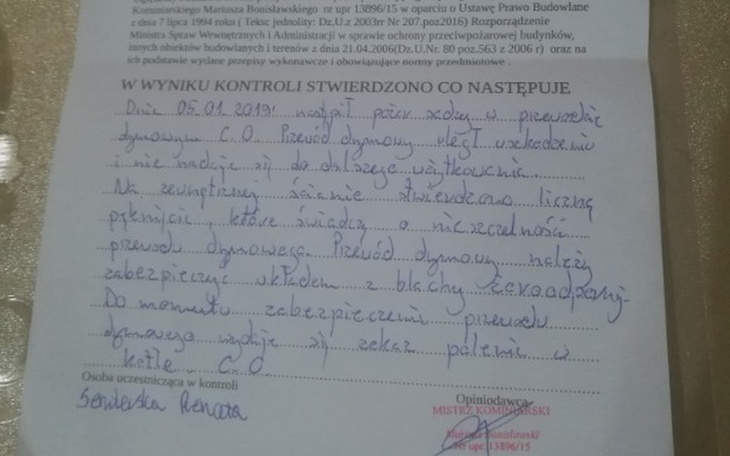 Kominiarskiego Mariusza Bonisławskiego nr upr 13896/15 w oparciu o Ustawę Prawo Budowlane
z dnia 7 lipca 1994 roku ( Tekst jednolity: Dz.U.z 2003nr Nr 207.poz2016) Rozporządzenie
Ministra Spraw Wewnętrznych i Administracji w sprawie ochrony przeciwpożarowej budynków,
innych obiektów budowlanych i terenów z dnia 21.04.2006(Dz.U.Nr. 80 poz.563 z 2006 r) oraz na
ich podstawie wydane przepisy wykonawcze i obowiązujące normy przedmiotowe .
W WYNIKU KONTROLI STWIERDZONO CO NASTĘPUJE
Dnia 05.01.2019r nastpił pożar sadzy w przewodzie
dymowym C.O. Przewód dymowy uległ uszkodzeniu
i nie nadaje się do dalszego użytkowania
Na zewnętrznej ścianie stwierdzono liczne
pęknięcia, które świadczy o nieszczelności
przewodu dymowego. Przewód dymowy należy
zabezpieczyć wkładem z blachy żaroodpornej.
Do momentu zabezpieczenia przewodu
dymowego wydaje się zakaz palenia w
kotle C.O.
Osoba uczestnicząca w kontroli
Opiniodawca
MISTRZ KOMINIARSKI
Renata
Mariusz Bonisławski
Nr upr. 13896/15